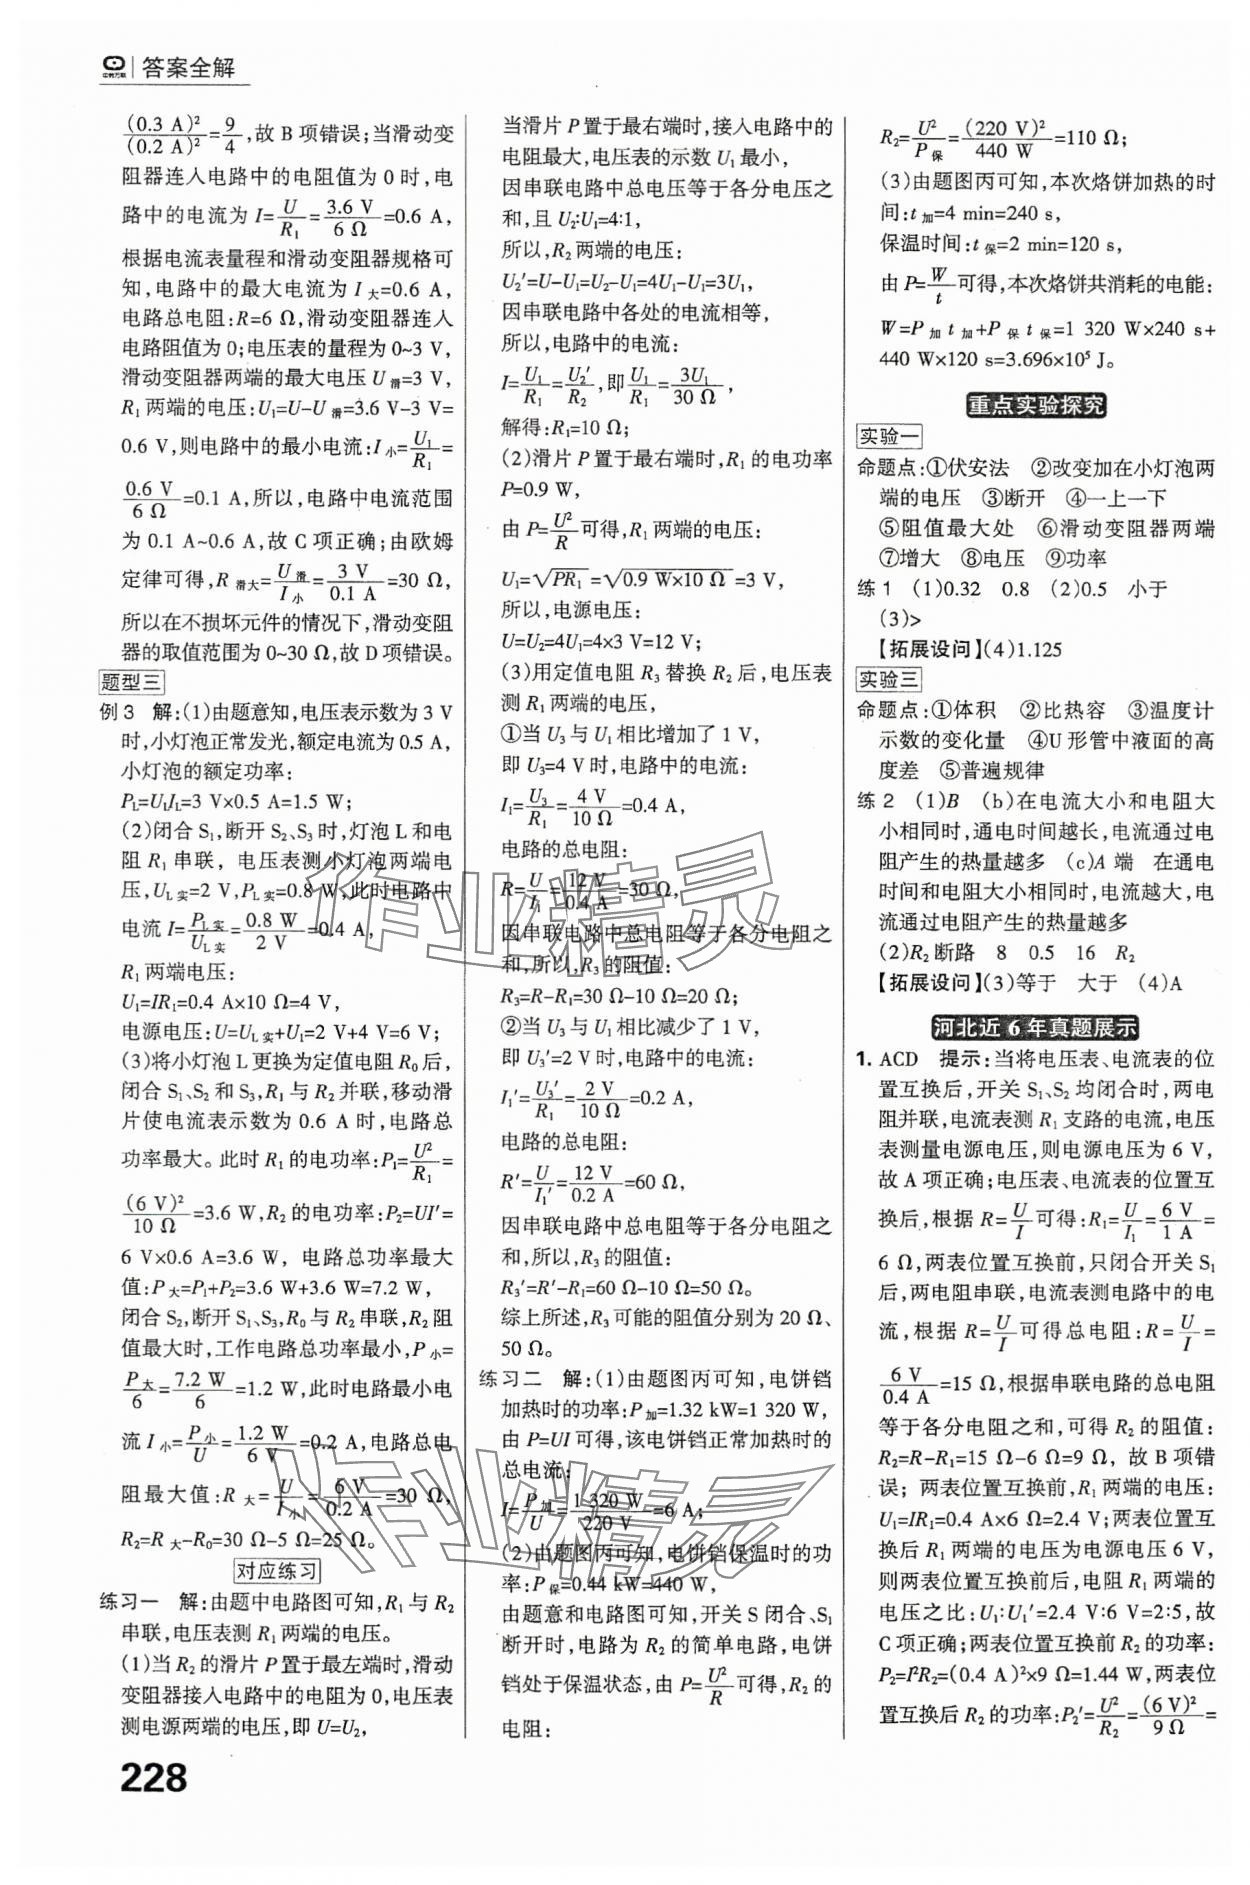 答案全解
(0.3 A)²/(0.2 A)²=9/4,故 B 项错误;当滑动变
阻器连入电路中的电阻值为 0 时,电
路中的电流为 I=U/R₁=3.6 V/6 Ω=0.6 A,
根据电流表量程和滑动变阻器规格可
知,电路中的最大电流为 I大=0.6 A,
电路总电阻:R=6 Ω,滑动变阻器连入
电路阻值为 0;电压表的量程为 0~3 V,
滑动变阻器两端的最大电压 U滑=3 V,
R₁ 两端的电压:U₁=U-U滑=3.6 V-3 V=
0.6 V,则电路中的最小电流:I小=U₁/R₁=
0.6 V/6 Ω=0.1 A,所以,电路中电流范围
为 0.1 A~0.6 A,故 C 项正确;由欧姆
定律可得,R滑大=U滑/I小=3 V/0.1 A=30 Ω,
所以在不损坏元件的情况下,滑动变阻
器的取值范围为 0~30 Ω,故 D 项错误。
题型三
例 3 解:(1)由题意知,电压表示数为 3 V
时,小灯泡正常发光,额定电流为 0.5 A,
小灯泡的额定功率:
P_L=U_L I_L=3 V×0.5 A=1.5 W;
(2)闭合 S₁,断开 S₂、S₃ 时,灯泡 L 和电
阻 R₁ 串联,电压表测小灯泡两端电
压,U_L实=2 V,P_L实=0.8 W,此时电路中
电流 I=P_L实/U_L实=0.8 W/2 V=0.4 A,
R₁ 两端电压:
U₁=IR₁=0.4 A×10 Ω=4 V,
电源电压:U=U_L实+U₁=2 V+4 V=6 V;
(3)将小灯泡 L 更换为定值电阻 R₀ 后,
闭合 S₁、S₂ 和 S₃,R₁ 与 R₂ 并联,移动滑
片使电流表示数为 0.6 A 时,电路总
功率最大。此时 R₁ 的电功率:P₁=U²/R₁=
(6 V)²/10 Ω=3.6 W,R₂ 的电功率:P₂=UI′=
6 V×0.6 A=3.6 W,电路总功率最大
值:P大=P₁+P₂=3.6 W+3.6 W=7.2 W,
闭合 S₂,断开 S₁、S₃,R₀ 与 R₂ 串联,R₂ 阻
值最大时,工作电路总功率最小,P小=
P大/6=7.2 W/6=1.2 W,此时电路最小电
流 I小=P小/U=1.2 W/6 V=0.2 A,电路总电
阻最大值:R大=U/I小=6 V/0.2 A=30 Ω,
R₂=R大-R₀=30 Ω-5 Ω=25 Ω。
对应练习
练习一 解:由题中电路图可知,R₁ 与 R₂
串联,电压表测 R₁ 两端的电压。
(1)当 R₂ 的滑片 P 置于最左端时,滑动
变阻器接入电路中的电阻为 0,电压表
测电源两端的电压,即 U=U₂,
228
当滑片 P 置于最右端时,接入电路中的
电阻最大,电压表的示数 U₁ 最小,
因串联电路中总电压等于各分电压之
和,且 U₂:U₁=4:1,
所以,R₂ 两端的电压:
U₂′=U-U₁=U₂-U₁=4U₁-U₁=3U₁,
因串联电路中各处的电流相等,
所以,电路中的电流:
I=U₁/R₁=U₂′/R₂,即U₁/R₁=3U₁/30 Ω,
解得:R₁=10 Ω;
(2)滑片 P 置于最右端时,R₁ 的电功率
P=0.9 W,
由 P=U²/R可得,R₁ 两端的电压:
U₁=√PR₁=√0.9 W×10 Ω=3 V,
所以,电源电压:
U=U₂=4U₁=4×3 V=12 V;
(3)用定值电阻 R₃ 替换 R₂ 后,电压表
测 R₁ 两端的电压,
①当 U₃ 与 U₁ 相比增加了 1 V,
即 U₃=4 V 时,电路中的电流:
I₁=U₃/R₁=4 V/10 Ω=0.4 A,
电路的总电阻:
R=U/I₁=12 V/0.4 A=30 Ω,
因串联电路中总电阻等于各分电阻之
和,所以,R₃ 的阻值:
R₃=R-R₁=30 Ω-10 Ω=20 Ω;
②当 U₃ 与 U₁ 相比减少了 1 V,
即 U₃′=2 V 时,电路中的电流:
I₁′=U₃′/R₁=2 V/10 Ω=0.2 A,
电路的总电阻:
R′=U/I₁′=12 V/0.2 A=60 Ω,
因串联电路中总电阻等于各分电阻之
和,所以,R₃ 的阻值:
R₃′=R′-R₁=60 Ω-10 Ω=50 Ω。
综上所述,R₃ 可能的阻值分别为 20 Ω、
50 Ω。
练习二 解:(1)由题图丙可知,电饼铛
加热时的功率:P加=1.32 kW=1 320 W,
由 P=UI 可得,该电饼铛正常加热时的
总电流:
I=P加/U=1 320 W/220 V=6 A;
(2)由题图丙可知,电饼铛保温时的功
率:P保=0.44 kW=440 W,
由题意和电路图可知,开关 S 闭合、S₁
断开时,电路为 R₂ 的简单电路,电饼
铛处于保温状态,由 P=U²/R可得,R₂ 的
电阻:
R₂=U²/P保=(220 V)²/440 W=110 Ω;
(3)由题图丙可知,本次烙饼加热的时
间:t加=4 min=240 s,
保温时间:t保=2 min=120 s,
由 P=W/t可得,本次烙饼共消耗的电能:
W=P加 t加+P保 t保=1 320 W×240 s+
440 W×120 s=3.696×10⁵ J。
重点实验探究
实验一
命题点:①伏安法 ②改变加在小灯泡两
端的电压 ③断开 ④一上一下
⑤阻值最大处 ⑥滑动变阻器两端
⑦增大 ⑧电压 ⑨功率
练 1 (1)0.32 0.8 (2)0.5 小于
(3)>
【拓展设问】(4)1.125
实验三
命题点:①体积 ②比热容 ③温度计
示数的变化量 ④U 形管中液面的高
度差 ⑤普遍规律
练 2 (1)B (b)在电流大小和电阻大
小相同时,通电时间越长,电流通过电
阻产生的热量越多 (c)A 端 在通电
时间和电阻大小相同时,电流越大,电
流通过电阻产生的热量越多
(2)R₂ 断路 8 0.5 16 R₂
【拓展设问】(3)等于 大于 (4)A
河北近 6 年真题展示
1. ACD 提示:当将电压表、电流表的位
置互换后,开关 S₁、S₂ 均闭合时,两电
阻并联,电流表测 R₁ 支路的电流,电压
表测量电源电压,则电源电压为 6 V,
故 A 项正确;电压表、电流表的位置互
换后,根据 R=U/I可得:R₁=U/I₁=6 V/1 A=
6 Ω,两表位置互换前,只闭合开关 S₁
后,两电阻串联,电流表测电路中的电
流,根据 R=U/I可得总电阻:R=U/I=
6 V/0.4 A=15 Ω,根据串联电路的总电阻
等于各分电阻之和,可得 R₂ 的阻值:
R₂=R-R₁=15 Ω-6 Ω=9 Ω,故 B 项错
误;两表位置互换前,R₁ 两端的电压:
U₁=IR₁=0.4 A×6 Ω=2.4 V;两表位置互
换后 R₁ 两端的电压为电源电压 6 V,
则两表位置互换前后,电阻 R₁ 两端的
电压之比:U₁:U₁′=2.4 V:6 V=2:5,故
C 项正确;两表位置互换前 R₂ 的功率:
P₂=I²R₂=(0.4 A)²×9 Ω=1.44 W,两表位
置互换后 R₂ 的功率:P₂′=U²/R₂=(6 V)²/9 Ω=
作业精灵
作业精灵